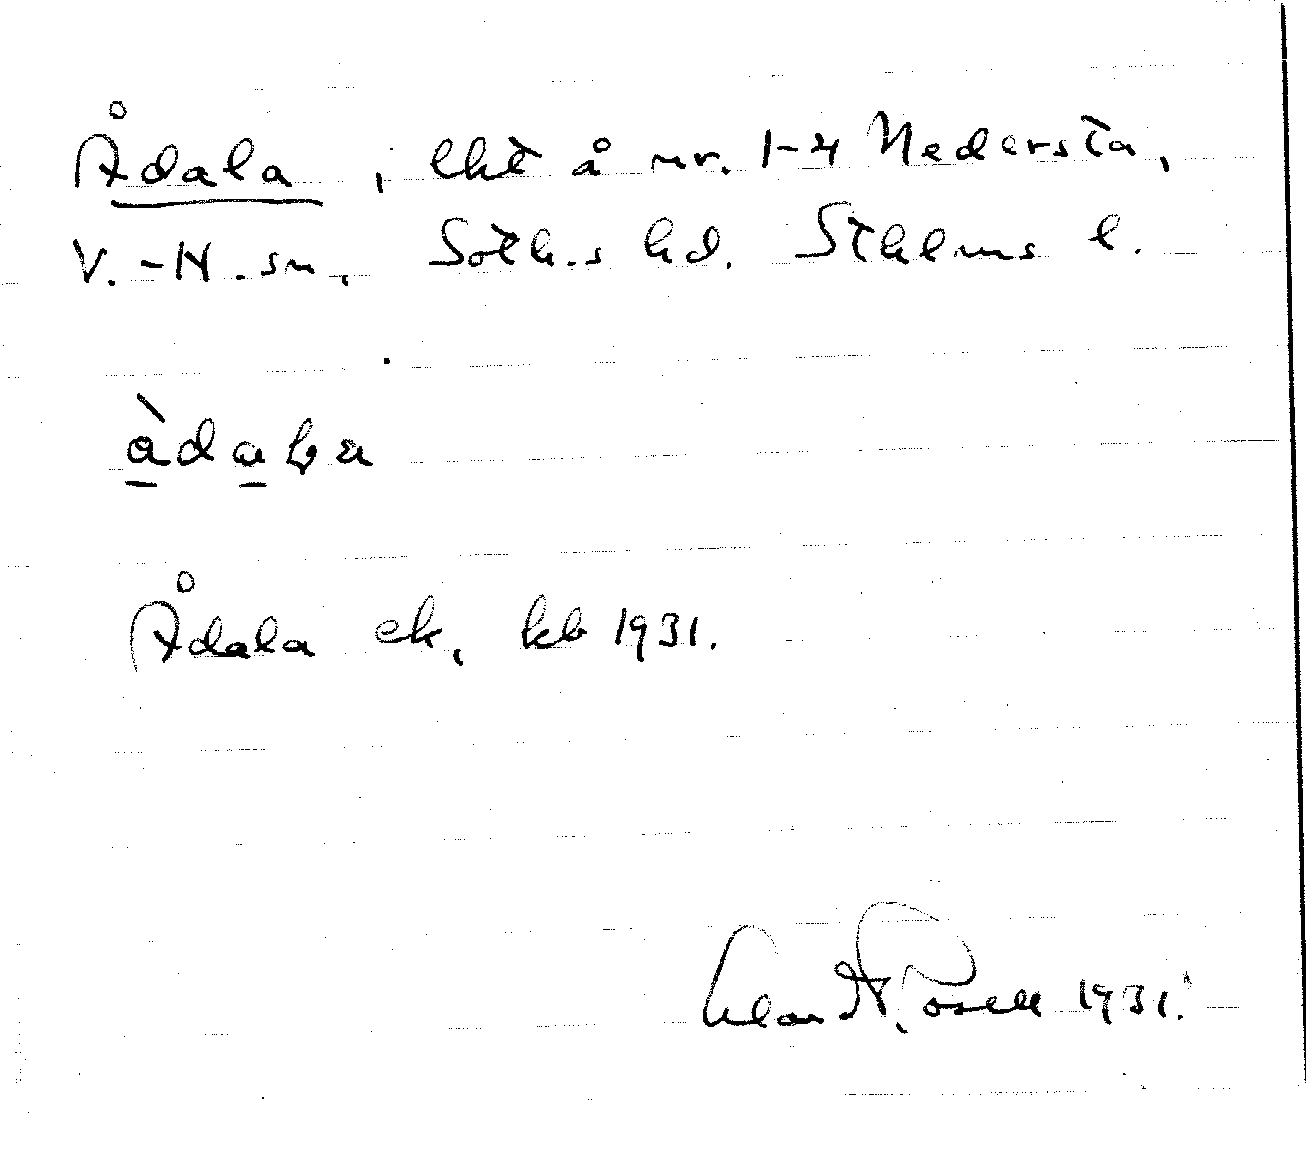 Ådala, lht å nr. 1-4 Nedersta,
V.-H. sn, Soth.s hd. Sthlms l.
Ådala eh, kb 1931.
1931.